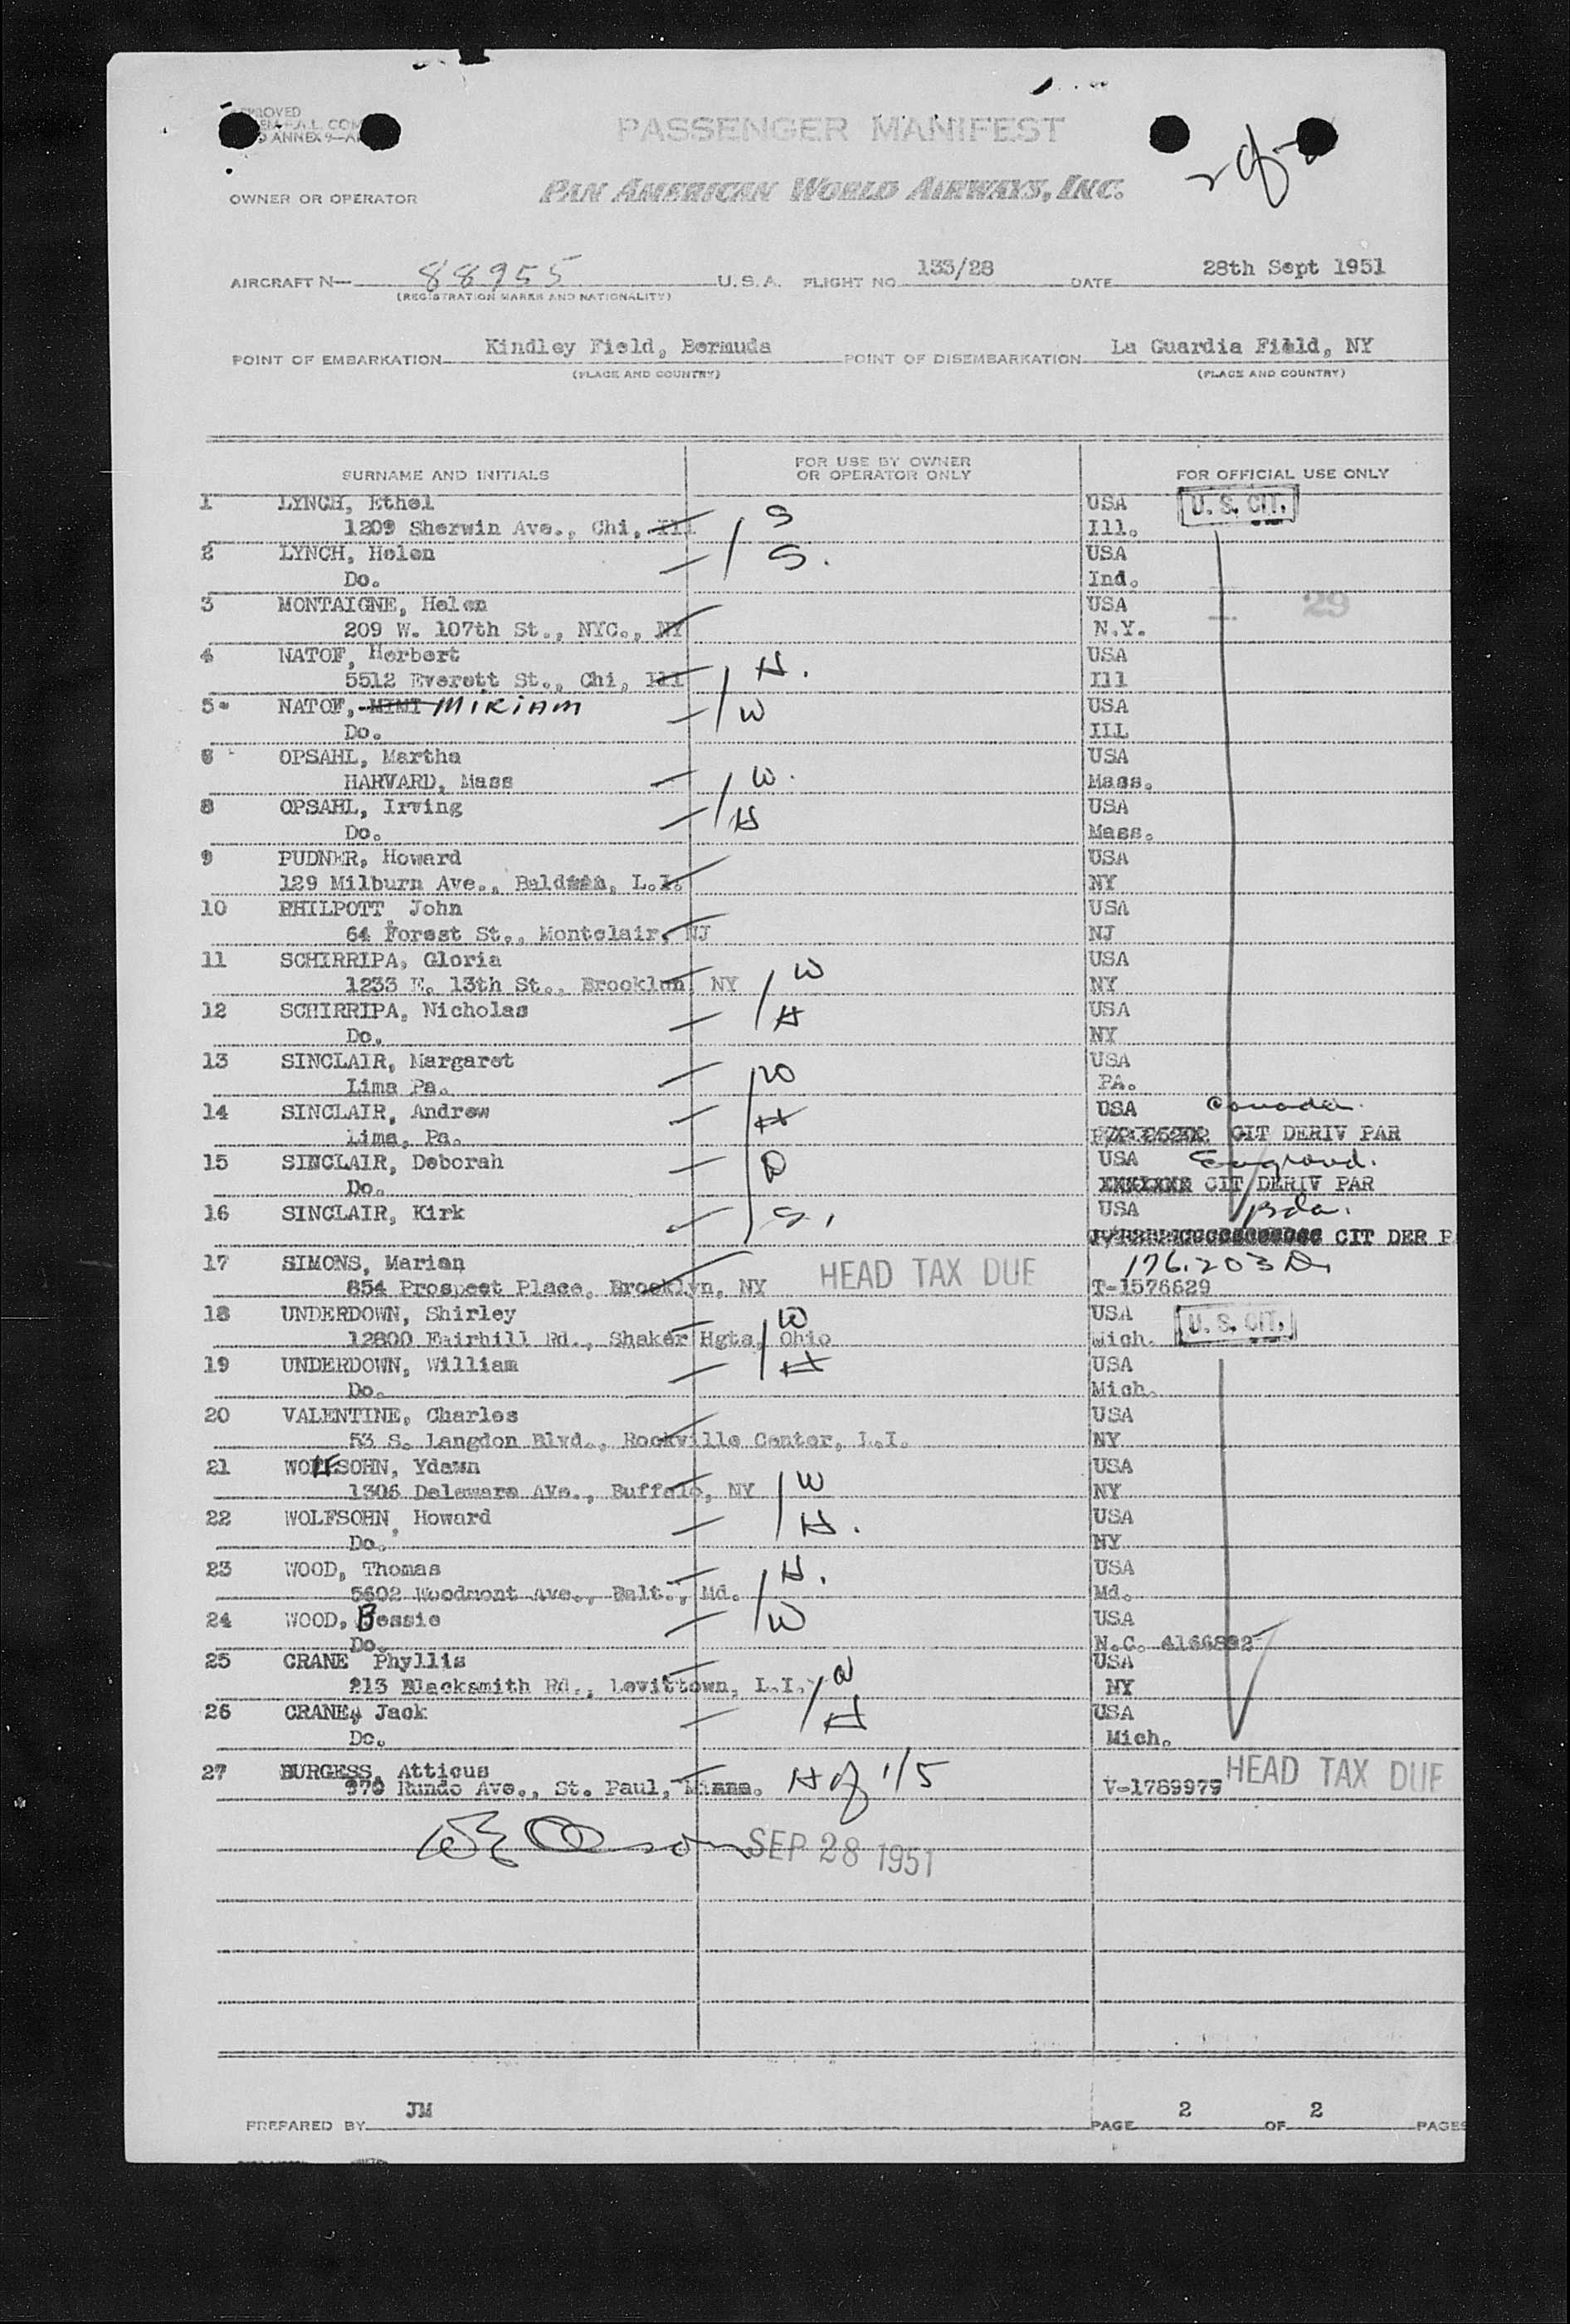 APPROVED
PASSENGER MANIFEST
2 of 2
OWNER OR OPERATOR PAN AMERICAN WORLD AIRWAYS, INC.
AIRCRAFT N— 88955 U.S.A. FLIGHT NO. 133/28 DATE 28th Sept 1951
(REGISTRATION MARKS AND NATIONALITY)
POINT OF EMBARKATION Kindley Field, Bermuda POINT OF DISEMBARKATION La Guardia Field, NY
(PLACE AND COUNTRY) (PLACE AND COUNTRY)
SURNAME AND INITIALS FOR USE BY OWNER OR OPERATOR ONLY FOR OFFICIAL USE ONLY
1 LYNCH, Ethel USA U. S. CIT.
1209 Sherwin Ave., Chi, Ill S Ill.
2 LYNCH, Helen S. USA
Do. Ind.
3 MONTAIGNE, Helen USA 29
209 W. 107th St., NYC., NY N.Y.
4 NATOF, Herbert USA
5512 Everett St., Chi, Ill H. Ill
5 NATOF, MIMI MIRIAM W USA
Do. ILL
6 OPSAHL, Martha USA
HARVARD, Mass W. Mass.
8 OPSAHL, Irving H USA
Do. Mass.
9 PUDNER, Howard USA
129 Milburn Ave., Baldwin, L.I. NY
10 PHILPOTT, John USA
64 Forest St., Montclair, NJ NJ
11 SCHIRRIPA, Gloria W USA
1233 E. 13th St., Brooklyn, NY NY
12 SCHIRRIPA, Nicholas H USA
Do. NY
13 SINCLAIR, Margaret W USA
Lima Pa. PA.
14 SINCLAIR, Andrew H USA Canada.
Lima, Pa. CIT DERIV PAR
15 SINCLAIR, Deborah D USA England.
Do. CIT DERIV PAR
16 SINCLAIR, Kirk S. USA Bda.
CIT DER P
17 SIMONS, Marian HEAD TAX DUE 176.203
854 Prospect Place, Brooklyn, NY T-1576629
18 UNDERDOWN, Shirley W USA U. S. CIT.
12800 Fairhill Rd., Shaker Hgts, Ohio Mich.
19 UNDERDOWN, William H USA
Do. Mich.
20 VALENTINE, Charles USA
53 S. Langdon Blvd., Rockville Center, L.I. NY
21 WOLFSOHN, Ydawn W USA
1306 Delaware AVe., Buffalo, NY NY
22 WOLFSOHN, Howard H. USA
Do. NY
23 WOOD, Thomas H. USA
5602 Woodmont Ave., Balt., Md. Md.
24 WOOD, Bessie W USA
Do. N.C. 4166892
25 CRANE Phyllis W USA
213 Blacksmith Rd., Levittown, L.I. NY
26 CRANE, Jack H USA
Do. Mich.
27 BURGESS, Atticus H of 1/5 HEAD TAX DUE
970 Rundo Ave., St. Paul, Minn. V-1789979
SEP 28 1951
PREPARED BY JM PAGE 2 OF 2 PAGES